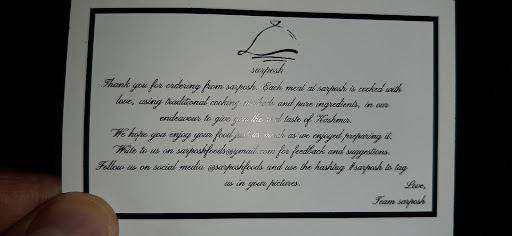 sarposh
Thank you for ordering from sarposh. Each meal at sarposh is cooked with
love, using traditional cooking methods and pure ingredients, in our
endeavour to give you the real taste of Kashmir.
We hope you enjoy your food just as much as we enjoyed preparing it.
Write to us on sarposhfoods@gmail.com for feedback and suggestions.
Follow us on social media @sarposhfoods and use the hashtag #sarposh to tag
us in your pictures.
Love,
Team sarposh